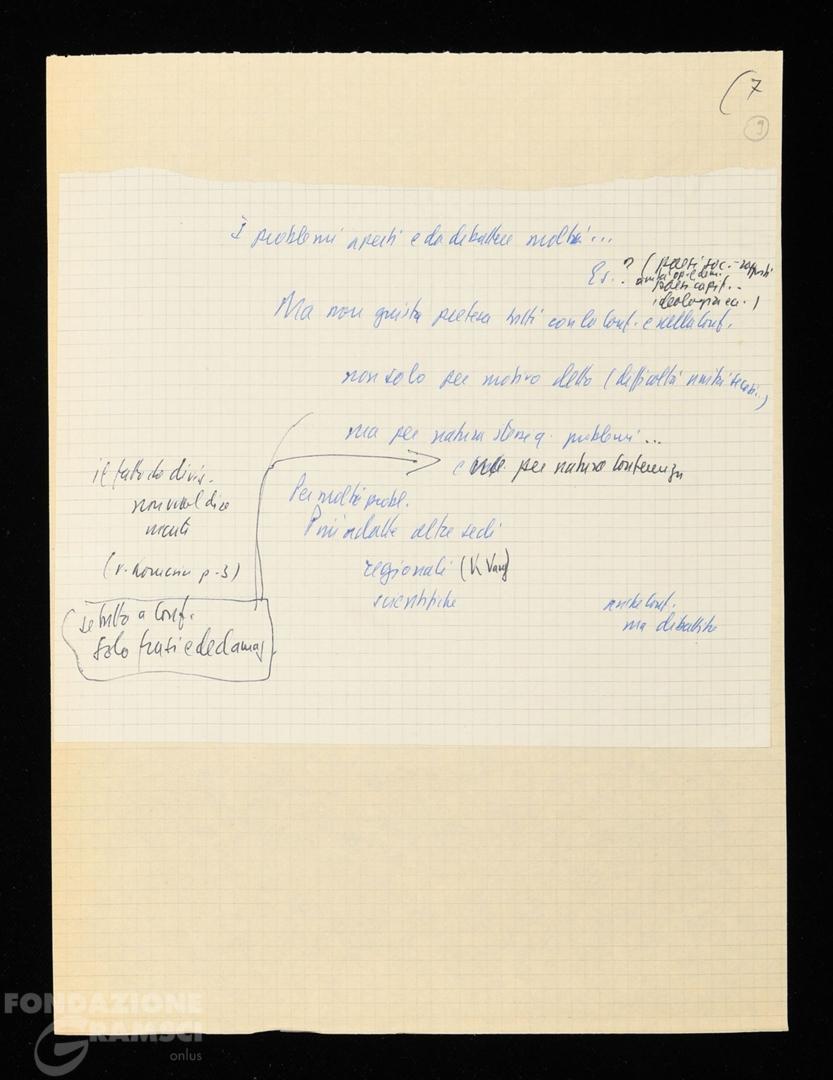 (7
9
I problemi aperti e da dibattere molti...
Es. ? (paesi soc. - rapporti
paesi capit. -
ideologia ecc.)
Ma non giusta pretesa tutti con la Conf. e nella Conf.
non solo per motivo detto (difficoltà
ma per natura stessa problemi...
e per natura Conferenza
il fatto
non vuol dire
niente
(v. Romania p. 3)
Per molti probl.
altre sedi
regionali (K. Vary)
scientifiche
Se tutto a Conf.
solo frasi e declamaz.
Conf.
ma dibattito
FONDAZIONE
GRAMSCI
onlus